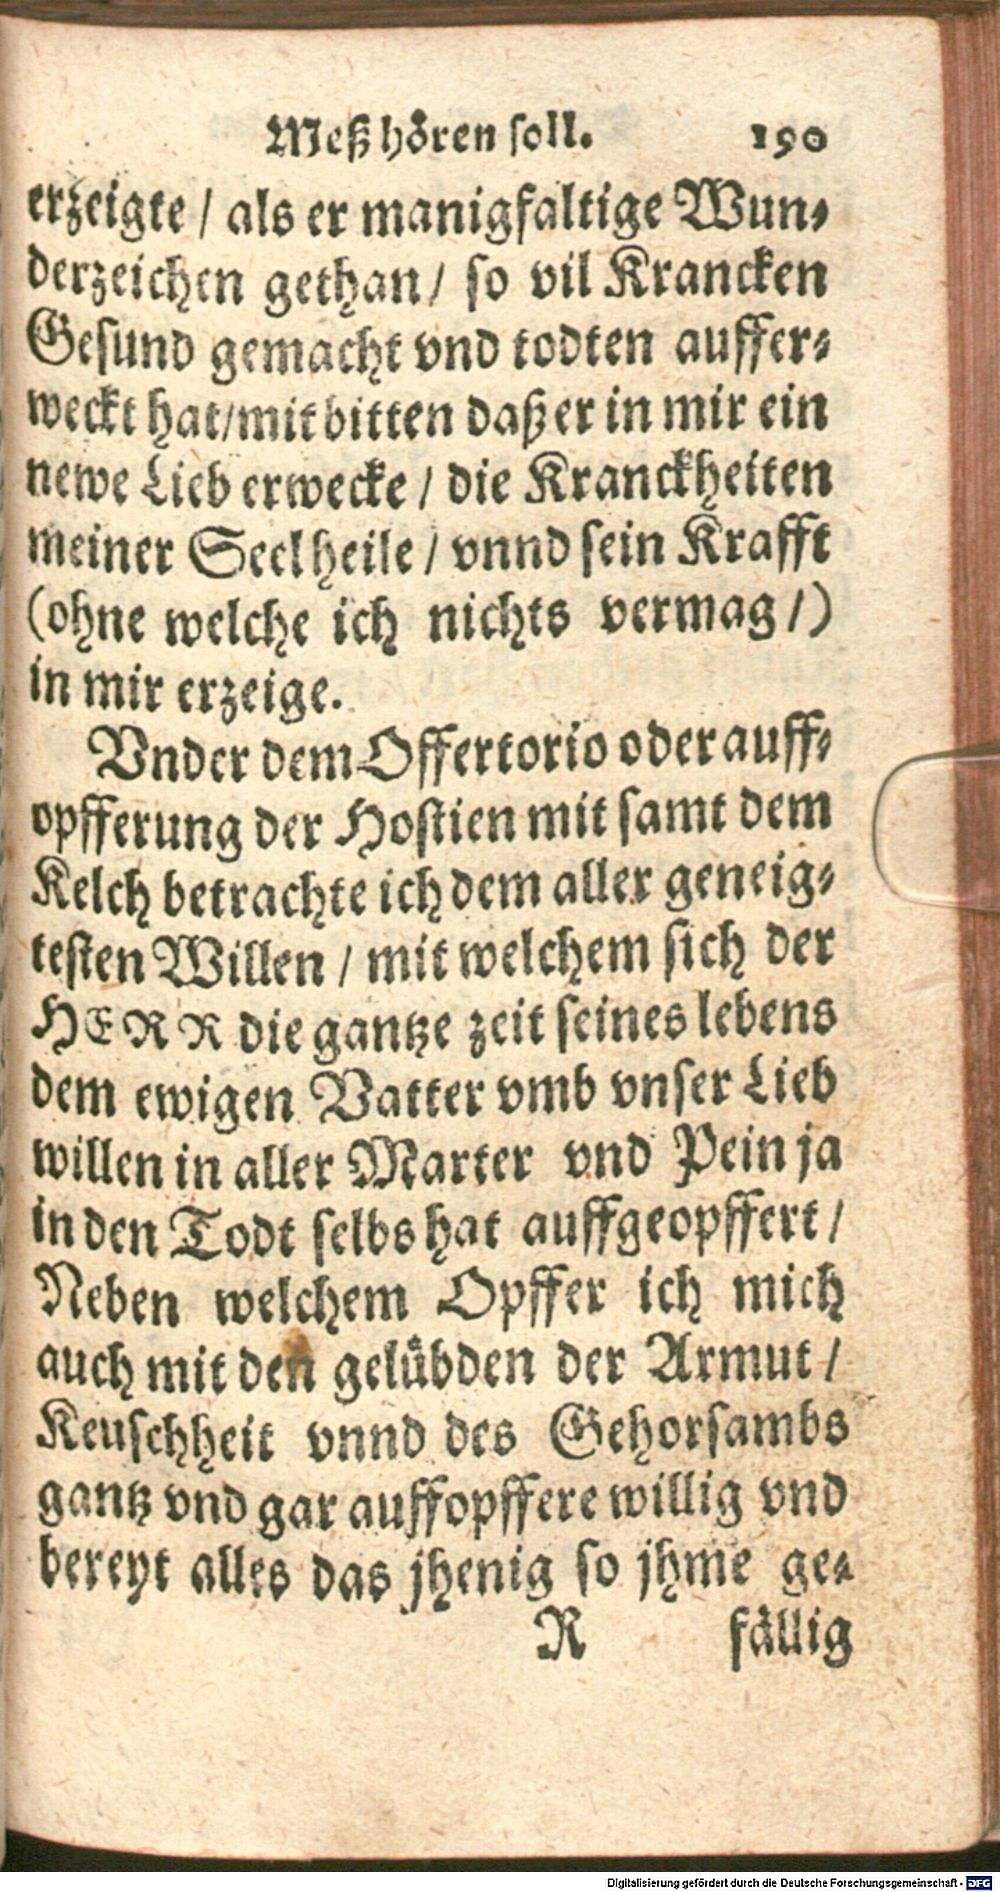 Meß hören soll. 190
erzeigte / als er manigfaltige Wun-
derzeichen gethan / so vil Krancken
Gesund gemacht vnd todten auffer-
weckt hat/mit bitten daß er in mir ein
newe Lieb erwecke / die Kranckheiten
meiner Seel heile / vnnd sein Krafft
(ohne welche ich nichts vermag /)
in mir erzeige.
Vnder dem Offertorio oder auff-
opfferung der Hostien mit samt dem
Kelch betrachte ich dem aller geneig-
testen Willen / mit welchem sich der
HERR die gantze zeit seines lebens
dem ewigen Vatter vmb vnser Lieb
willen in aller Marter vnd Pein ja
in den Todt selbs hat auffgeopffert /
Neben welchem Opffer ich mich
auch mit den gelübden der Armut /
Keuschheit vnnd des Gehorsambs
gantz vnd gar auffopffere willig vnd
bereyt alles das jhenig so jhme ge-
R fällig
Digitalisierung gefördert durch die Deutsche Forschungsgemeinschaft - DFG